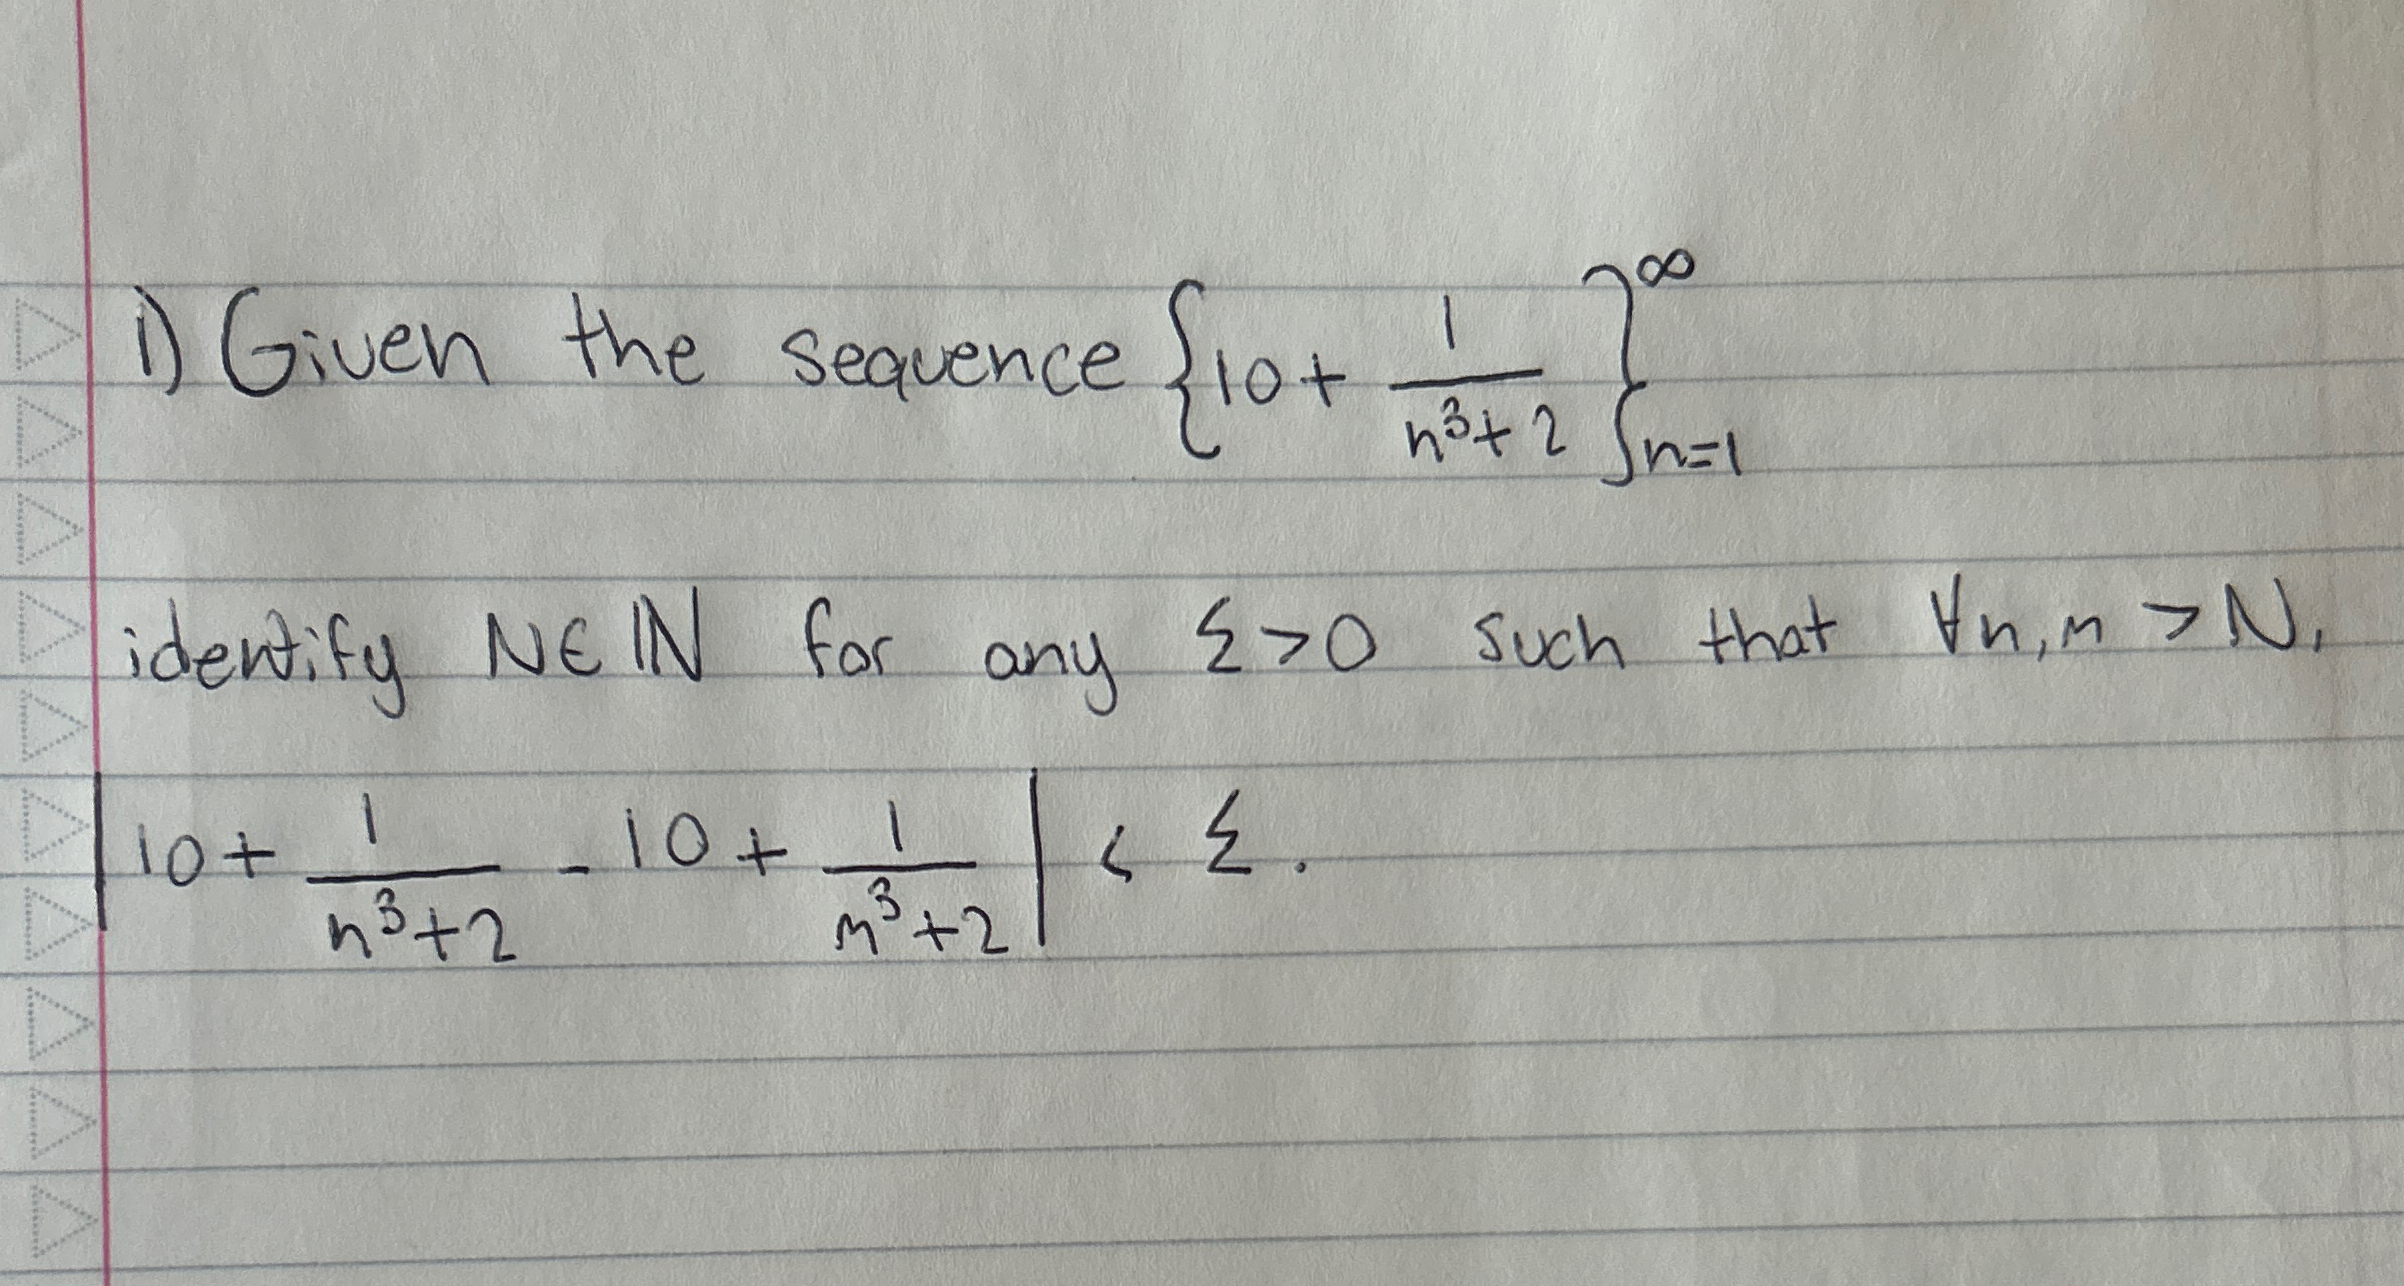 1) Given the sequence {10 + 1/(n³+2)}ₙ₌₁^∞
identify N ∈ ℕ for any ε > 0 such that ∀n,m > N,
|10 + 1/(n³+2) - 10 + 1/(m³+2)| < ε.